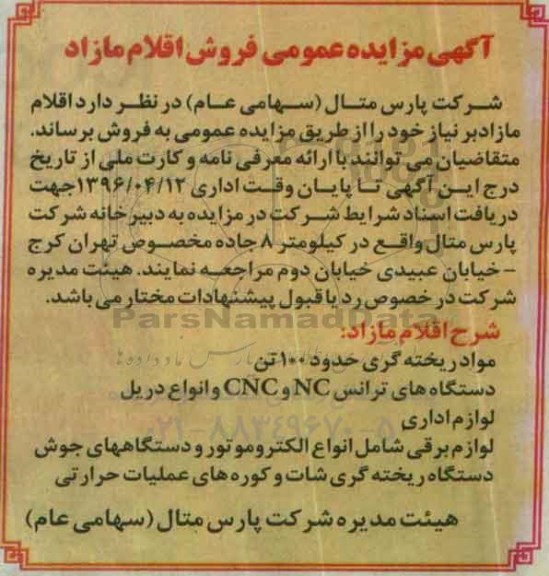 آگهی مزایده عمومی فروش اقلام مازاد
شرکت پارس متال (سهامی عام) در نظر دارد اقلام
مازادبر نیاز خود را از طریق مزایده عمومی به فروش برساند.
متقاضیان می توانند با ارائه معرفی نامه و کارت ملی از تاریخ
درج این آگهی تا پایان وقت اداری ۱۳۹۶/۰۴/۱۲جهت
دریافت اسناد شرایط شرکت در مزایده به دبیرخانه شرکت
پارس متال واقع در کیلومتر ۸ جاده مخصوص تهران کرج
- خیابان عبیدی خیابان دوم مراجعه نمایند. هیئت مدیره
شرکت در خصوص رد یا قبول پیشنهادات مختار می باشد.
ParsNamadData
شرح اقلام مازاد:
مواد ریخته گری حدود ۱۰۰تن
دستگاه های ترانس NC و CNC و انواع دریل
لوازم اداری
۰۲۱-۸۸۳۴۹۶۷۰-۵
لوازم برقی شامل انواع الکتروموتور و دستگاههای جوش
دستگاه ریخته گری شات و کوره های عملیات حرارتی
هیئت مدیره شرکت پارس متال (سهامی عام)